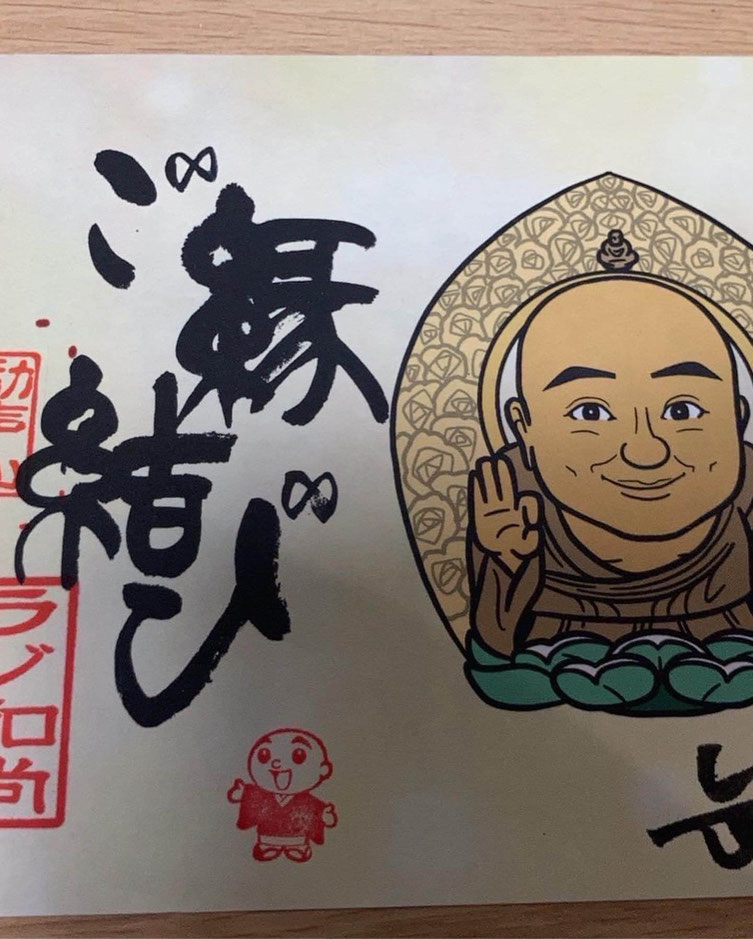 ご縁
結び
ラジ和尚